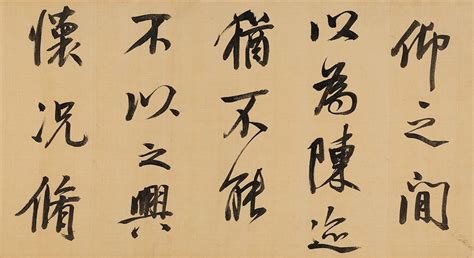 仰之間
以為陳迹
猶不能
不以之興
懷況脩